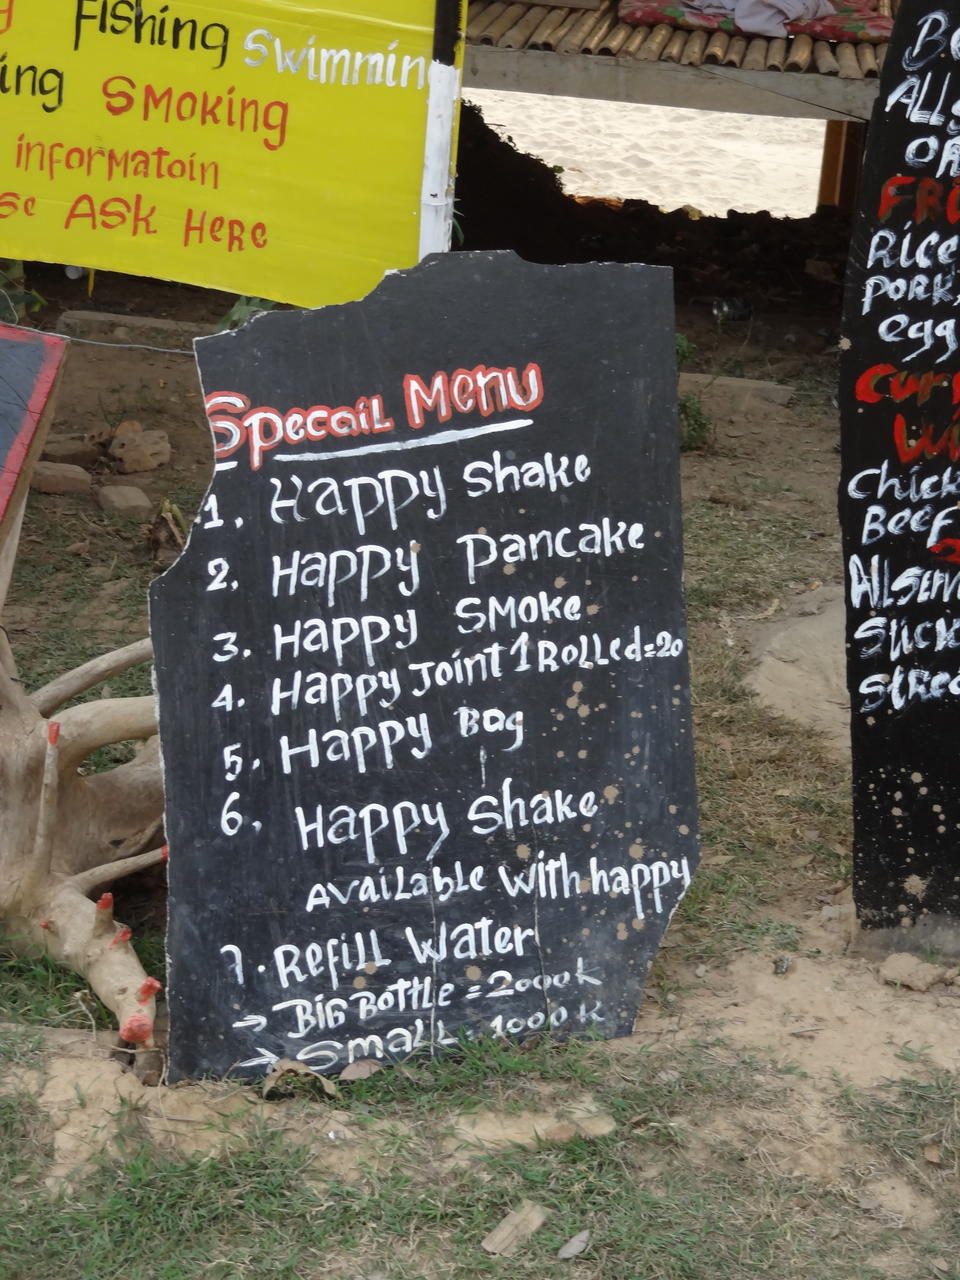 Fishing swimming
ing Smoking
informatoin
se Ask Here
Specail Menu
1. Happy Shake
2. Happy pancake
3. Happy Smoke
4. Happy Joint 1 Rolled=20
5. Happy Bag
6. Happy Shake
Available with happy
7. Refill Water
→ Big Bottle = 2000k
→ Small = 1000k
ALL
Rice
Pork,
egg
Chick
Beef
Allserv
Stick